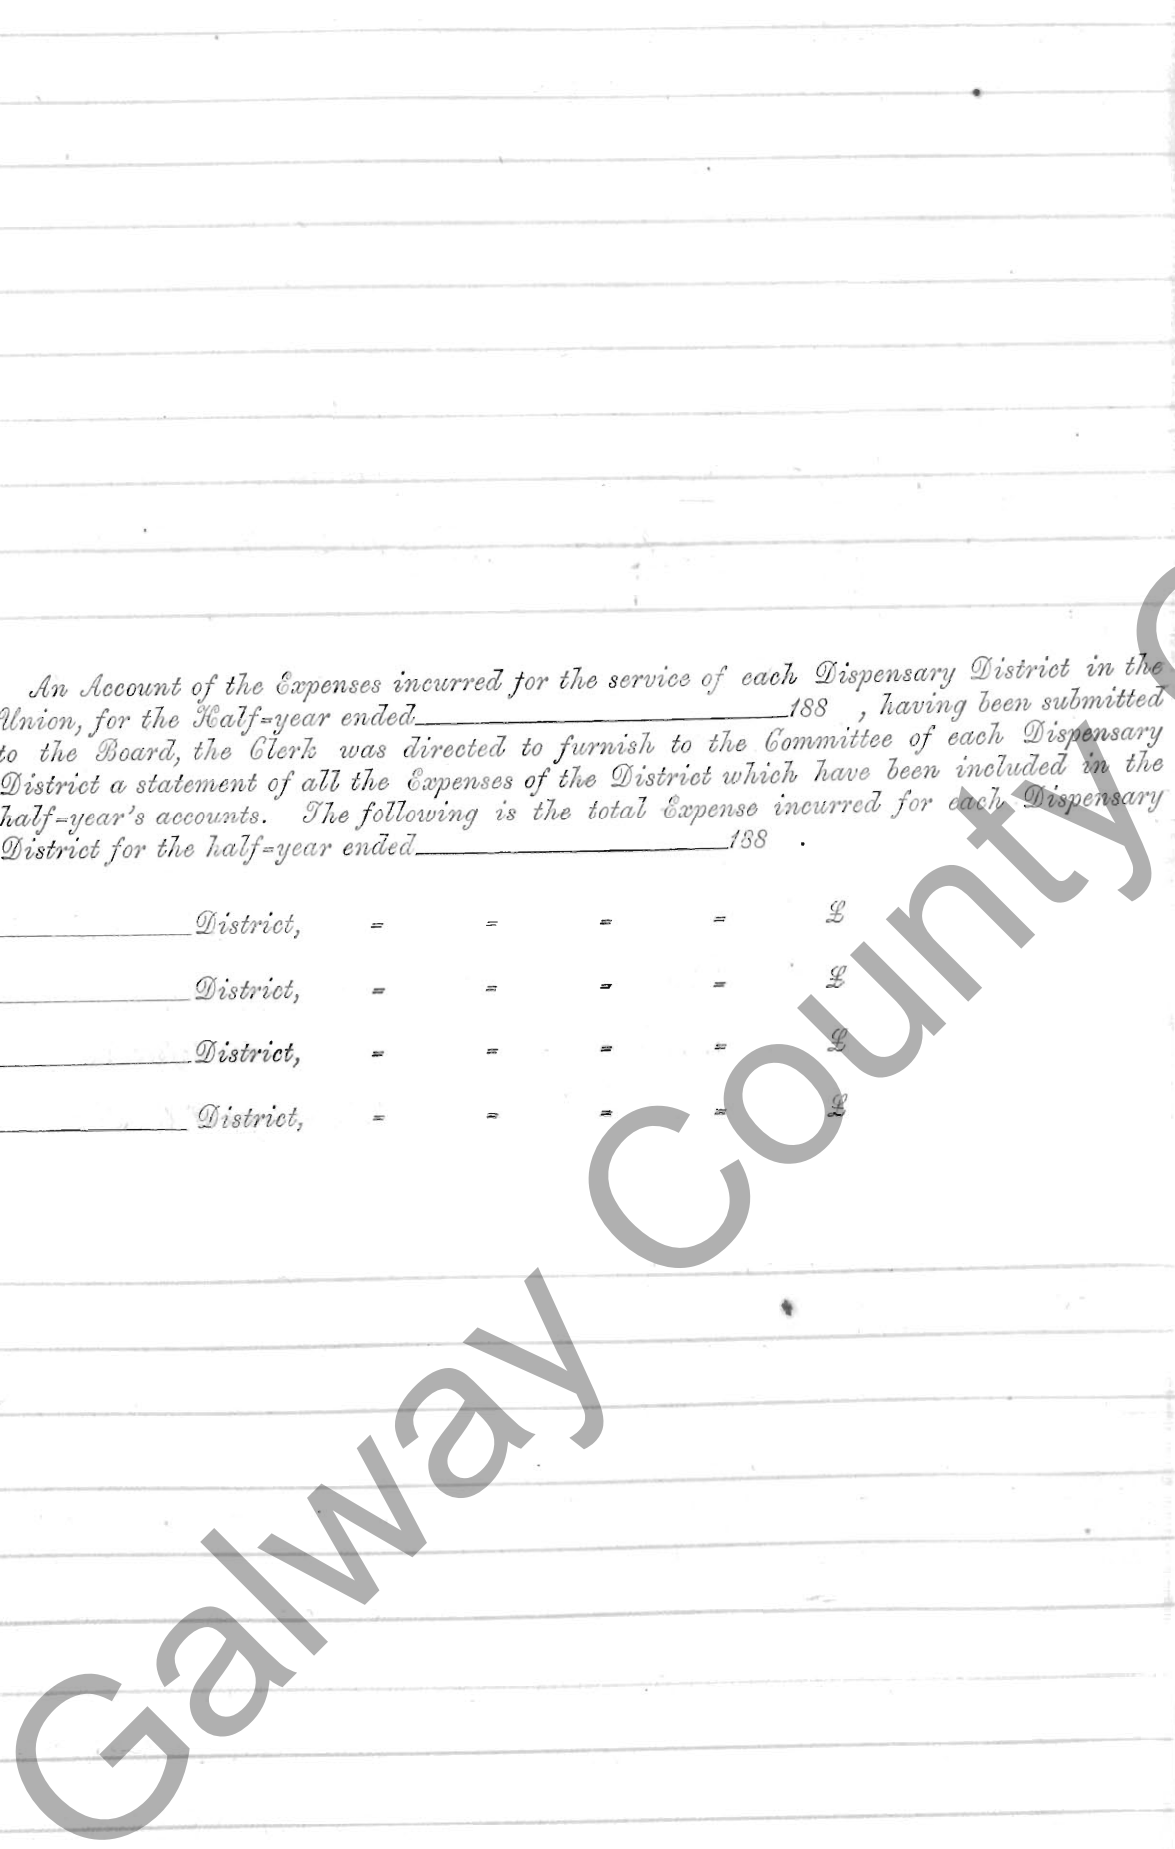 An Account of the Expenses incurred for the service of each Dispensary District in the
Union, for the Half-year ended____________188 , having been submitted
to the Board, the Clerk was directed to furnish to the Committee of each Dispensary
District a statement of all the Expenses of the District which have been included in the
half-year's accounts. The following is the total Expense incurred for each Dispensary
District for the half-year ended____________188 .
____________District, = = = = £
____________District, = = = = £
____________District, = = = = £
____________District, = = = = £
Galway County